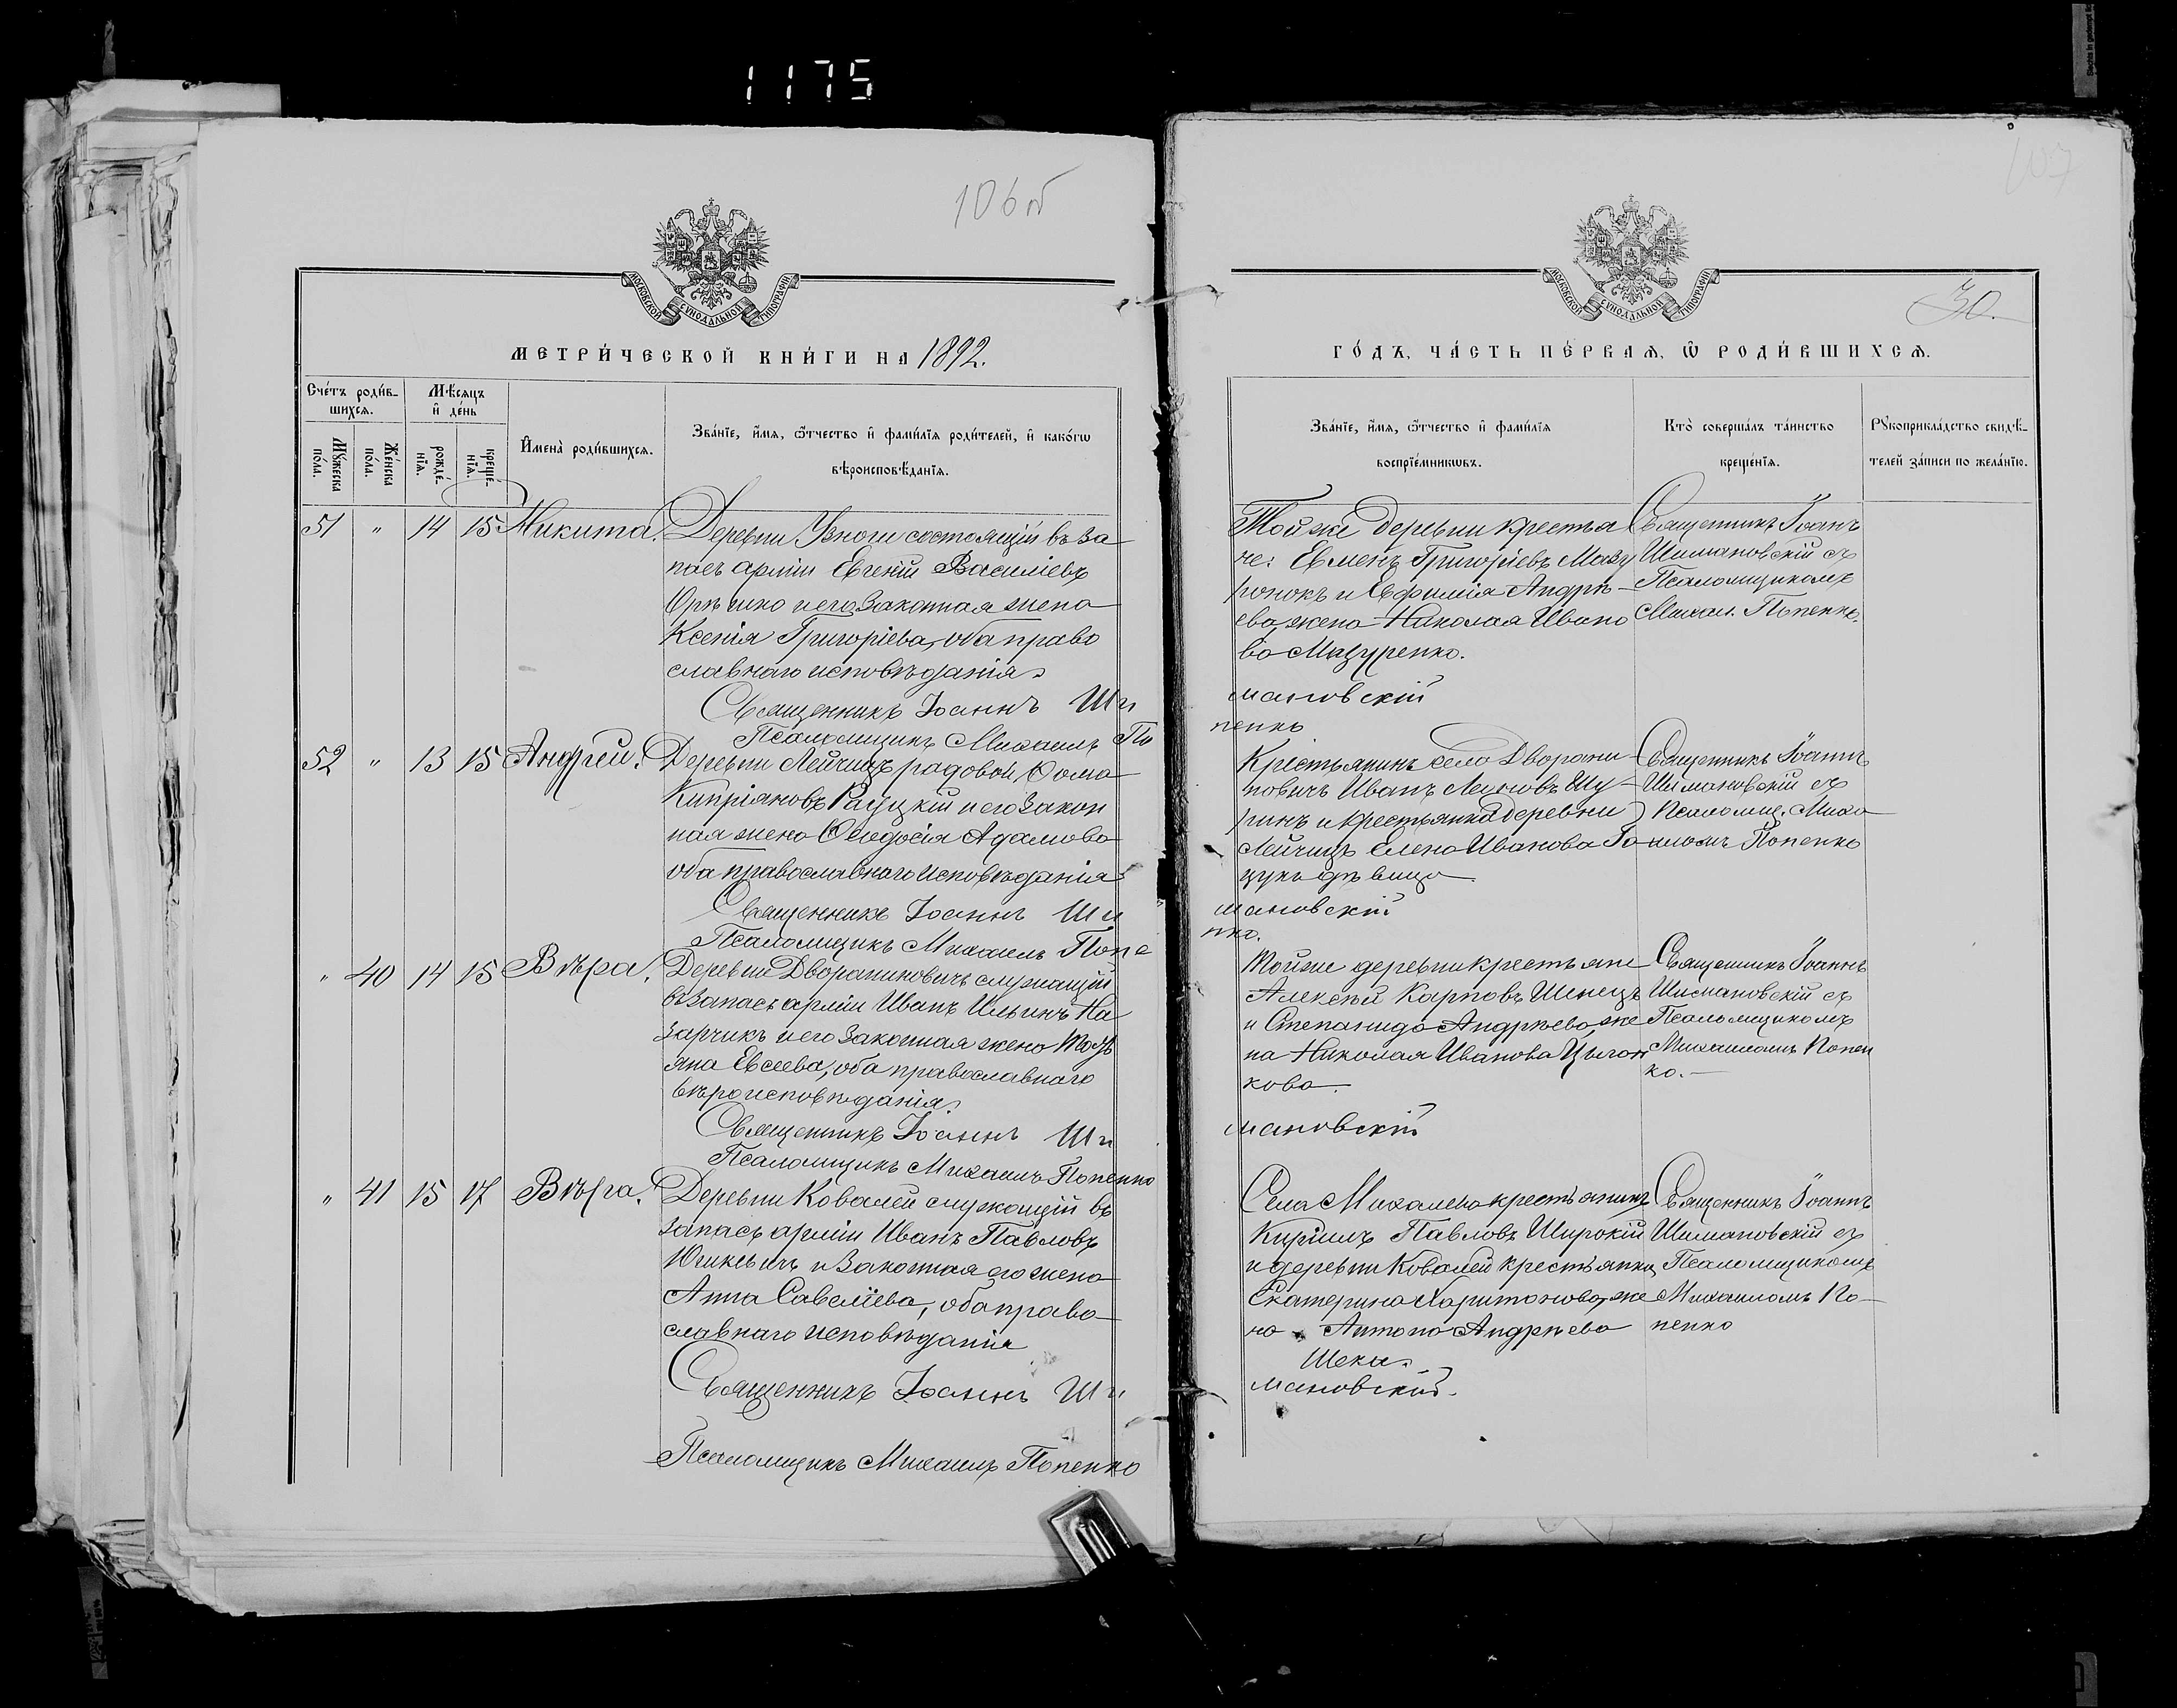 1175
106 об
МОСКОВСКОЙ СѴНОДАЛЬНОЙ ТИПОГРАФІИ
МЕТРИ́ЧЕСКОЙ КНИ́ГИ НА 1892.
Сче́тъ роди́в-
шихсѧ.
Мѣ́сѧцъ
и҆ де́нь
Мꙋ́жеска
по́ла.
Же́нска
по́ла.
рожде́-
нїѧ.
креще́-
нїѧ.
И҆мена̀ роди́вшихсѧ.
Зва́нїе, и҆́мѧ, ѻ҆́тчество и҆ фами́лїѧ роди́телей, и҆ како́гѡ
вѣроисповѣ́данїѧ.
51 " 14 15 Никита.
Деревни Узноги состоящій въ за
пасѣ арміи Евгеній Василіевъ
и его законная жена
Ксенія Григоріева, оба право
славнаго исповѣданія.
Священникъ Іоаннъ Ши
Псаломщикъ Михаилъ По
52 " 13 15 Андрей.
Деревни Лейчицъ рядовой Ѳома
Кипріановъ Рауцкій и его закон
ная жена Ѳеодосія Адамова
оба православнаго исповѣданія
Священникъ Іоаннъ Ши
Псаломщикъ Михаилъ Попе
" 40 14 15 Вѣра.
Деревни Дворяниновичъ служащій
въ запасѣ арміи Иванъ Ильинъ На
зарчикъ и его законная жена Тать
яна Евсеева, оба православнаго
вѣроисповѣданія.
Священникъ Іоаннъ Ши
Псаломщикъ Михаилъ Попенко
" 41 15 17 Вѣра.
Деревни Ковалей служащій въ
запасѣ арміи Иванъ Павловъ
и законная его жена
Анна Савеліева, оба право
славнаго исповѣданія
Священникъ Іоаннъ Ши
Псаломщикъ Михаилъ Попенко
107
30.
МОСКОВСКОЙ СѴНОДАЛЬНОЙ ТИПОГРАФІИ
ГО́ДЪ, ЧА́СТЬ ПЕ́РВАѦ, Ѡ҆ РОДИ́ВШИХСѦ.
Зва́нїе, и҆́мѧ, ѻ҆́тчество и҆ фами́лїѧ
воспрїе́мникѡвъ.
Кто̀ соверша́лъ та́инство
креще́нїѧ.
Рꙋкоприкла́дство свидѣ́-
телей за́писи по жела́нїю.
Той же деревни крестья
не: Евменъ Григоріевъ Мазу
ронокъ и Евфимія Андрѣ-
ева, жена Николая Ивано
ва Мазуренко.
мановскій
пенко
Священникъ Іоаннъ
Шимановскій съ
Псаломщикомъ
Михаил. Попенко.
Крестьянинъ села Дворяни-
новичъ Иванъ Леоновъ Шу-
ринъ и крестьянка деревни
Лейчицъ Елена Иванова Го
цукъ дѣвица
мановскій
нко.
Священникъ Іоаннъ
Шимановскій съ
Псаломщ. Миха-
иломъ Попенко
Той же деревни крестьяне
Алексѣй Карповъ Шинецъ
и Степанида Андрѣева, же
на Николая Иванова Цыган
кова.
мановскій
Священникъ Іоаннъ
Шимановскій съ
Псаломщикомъ
Михаиломъ Попен
ко.
Села Михалева крестьянинъ
Кириллъ Павловъ Широкій
и деревни Ковалей крестьянка
Екатерина Харитонова, же
на Антона Андрѣева
мановскій.
Священникъ Іоаннъ
Шимановскій съ
Псаломщикомъ
Михаиломъ По-
пенко